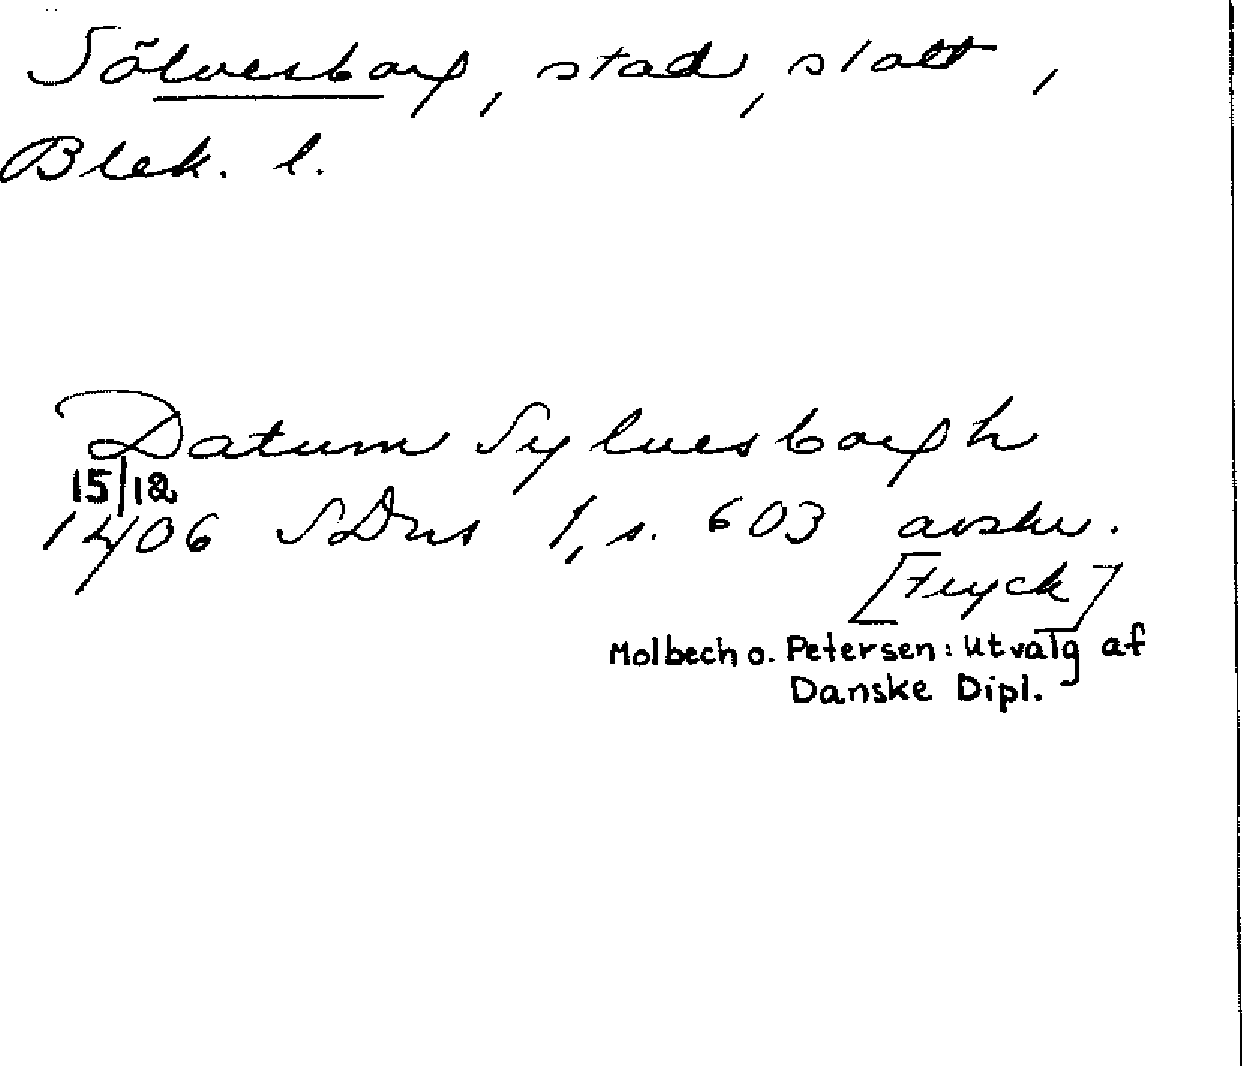 Sölvesborg, stad, slott,
Blek. l.
Datum Syluesborgh
15/12
1406 SDns 1, s. 603 avskr.
[tryck]
Molbech o. Petersen: Utvalg af
Danske Dipl.